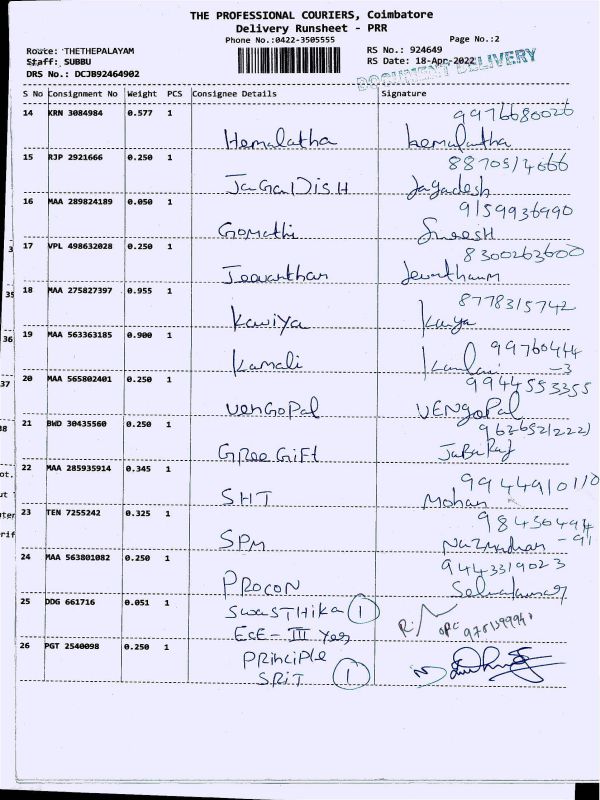 THE PROFESSIONAL COURIERS, Coimbatore
Delivery Runsheet - PRR
Phone No.:0422-3505555 Page No.:2
Route: 'THETHEPALAYAM RS No.: 924649
Staff: SUBBU RS Date: 18-Apr-2022
DRS No.: DCJB92464902 DOCUMENT DELIVERY
S No Consignment No Weight PCS Consignee Details Signature
14 KRN 3084984 0.577 1 9976680026
Hemalatha hemalatha
15 RJP 2921666 0.250 1
JaGaDISH Jagadesh
16 MAA 289824189 0.050 1 9159936990
Gomathi SureSH
17 VPL 498632028 0.250 1 8300263600
Jeevanthan
18 MAA 275827397 0.955 1 8778315742
Kaviya Kaviya
19 MAA 563363185 0.900 1 99760444
Kamali -3
20 MAA 565802401 0.250 1 9944553355
venGoPal VENgoPal
21 BWD 30435560 0.250 1
Gree GiFt JaBaRaj
22 MAA 285935914 0.345 1 9944910110
SHT Mohan
23 TEN 7255242 0.325 1 98436494
SPM -91
24 MAA 563801082 0.250 1 9443319023
PROCON Selvakumar
25 DDG 661716 0.051 1 SwaSTHika 1
ECE- III Year
26 PGT 2540098 0.250 1 PRinciPle
SRiT 1
3
35
36
37
38
ot.
ut
ter
rif